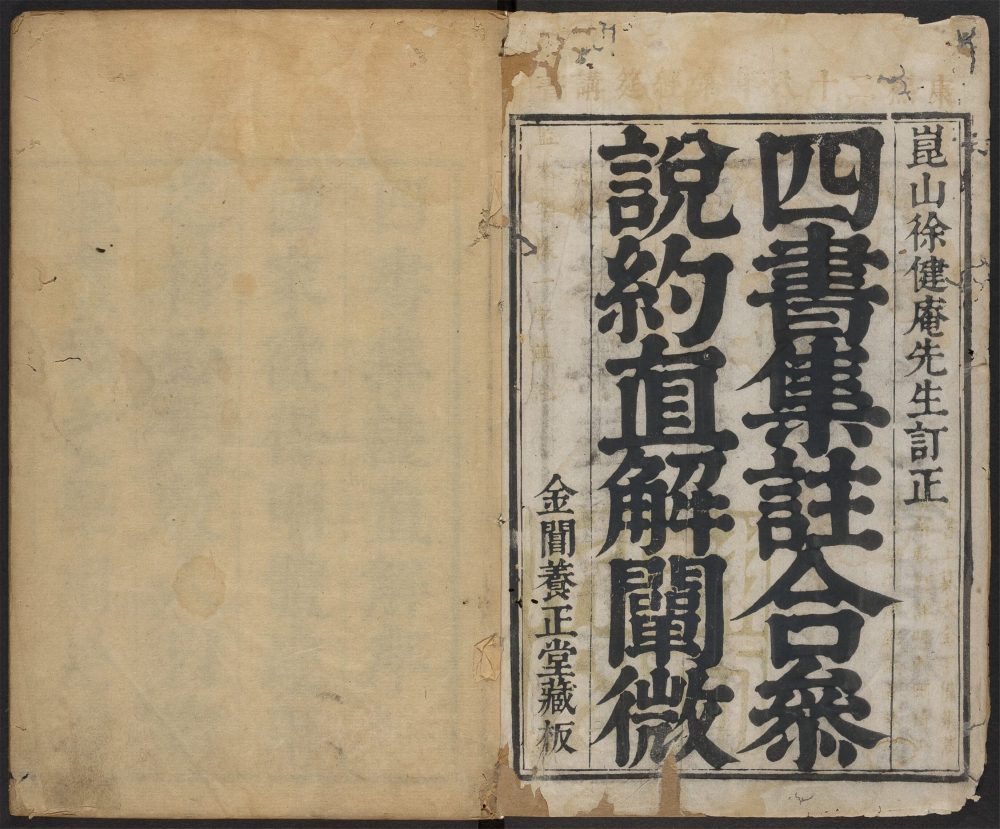 崑山徐健庵先生訂正
四書集註合參
說約直解闡微
金閶養正堂藏板